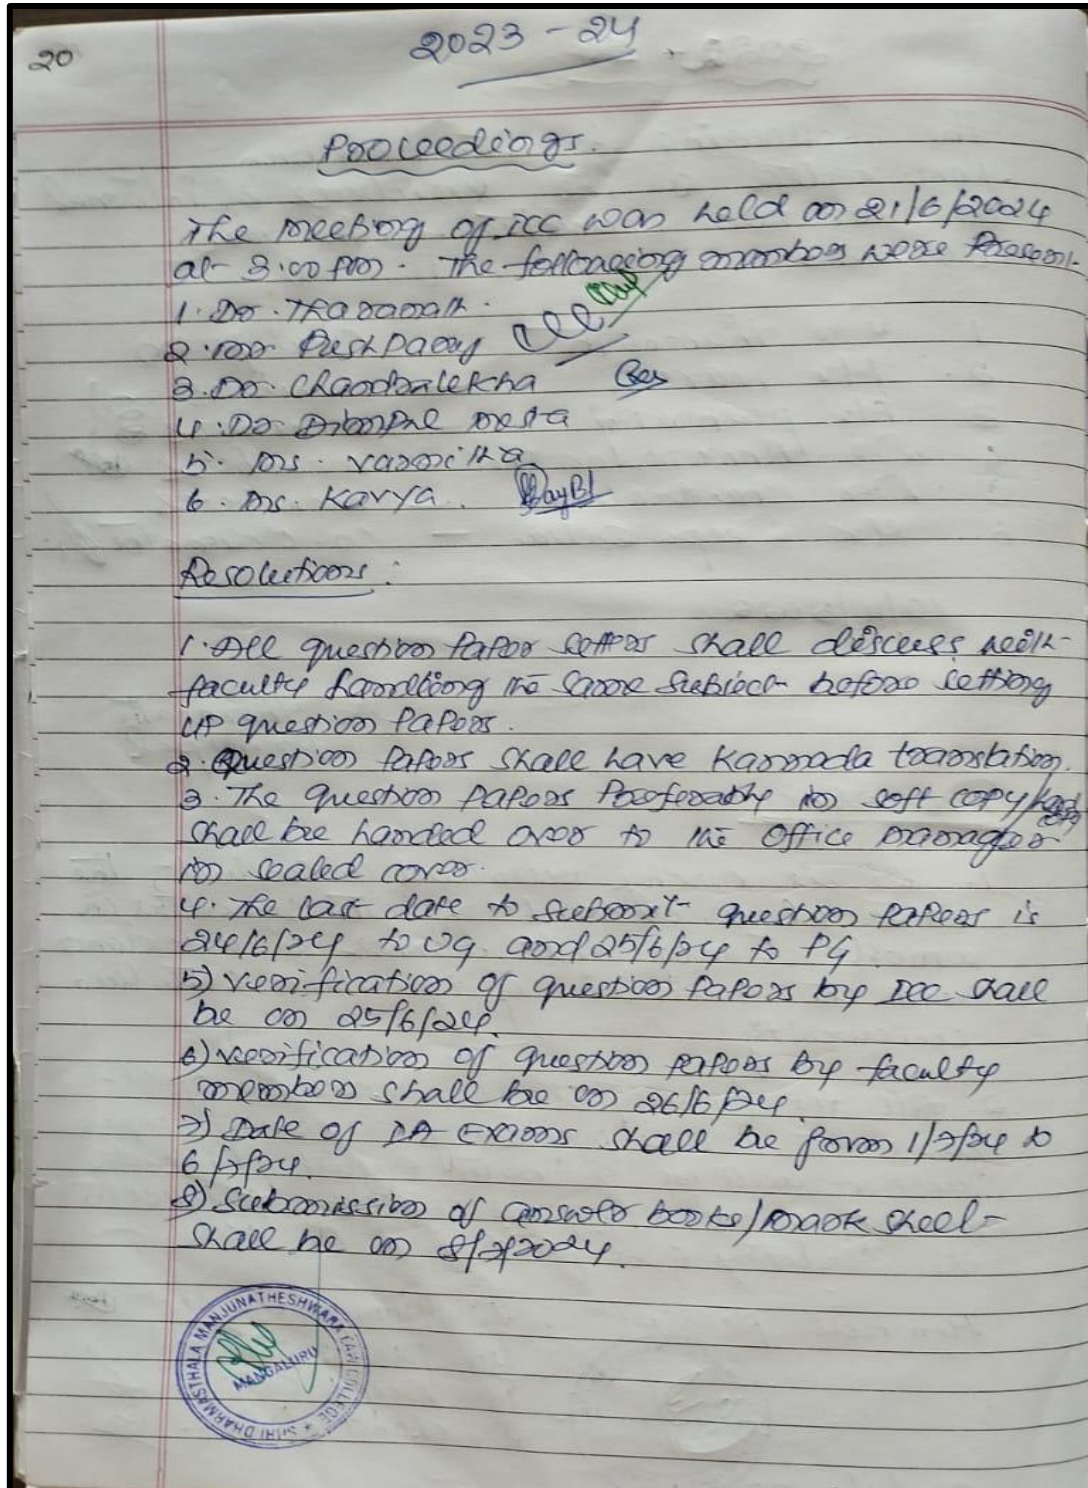 20
2023-24
Proceedings.
The meeting of ICC was held on 21/6/2024
at 3.00 pm. The following members were present-
1. Dr. Tharanath.
2. Mr Pushparaj
3. Dr. Chandralekha
4. Dr Dimple Mesta
5. Ms. Varmitha
6. Ms. Kavya.
Resolutions:
1. All question paper setters shall discuss with
faculty handling the same subject before setting
up question papers.
2. Question papers shall have Kannada translation.
3. The question papers preferably in soft copy/
shall be handed over to the office manager
in sealed cover.
4. The last date to submit question papers is
24/6/24 to UG and 25/6/24 to PG
5) Verification of question papers by ICC shall
be on 25/6/24.
6) Verification of question papers by faculty
members shall be on 26/6/24.
7) Date of IA Exams shall be from 1/7/24 to
6/7/24.
8) Submission of answer books/mark sheet
shall be on 8/7/2024.
SHRI DHARMASTHALA MANJUNATHESHWARA LAW COLLEGE
MANGALURU